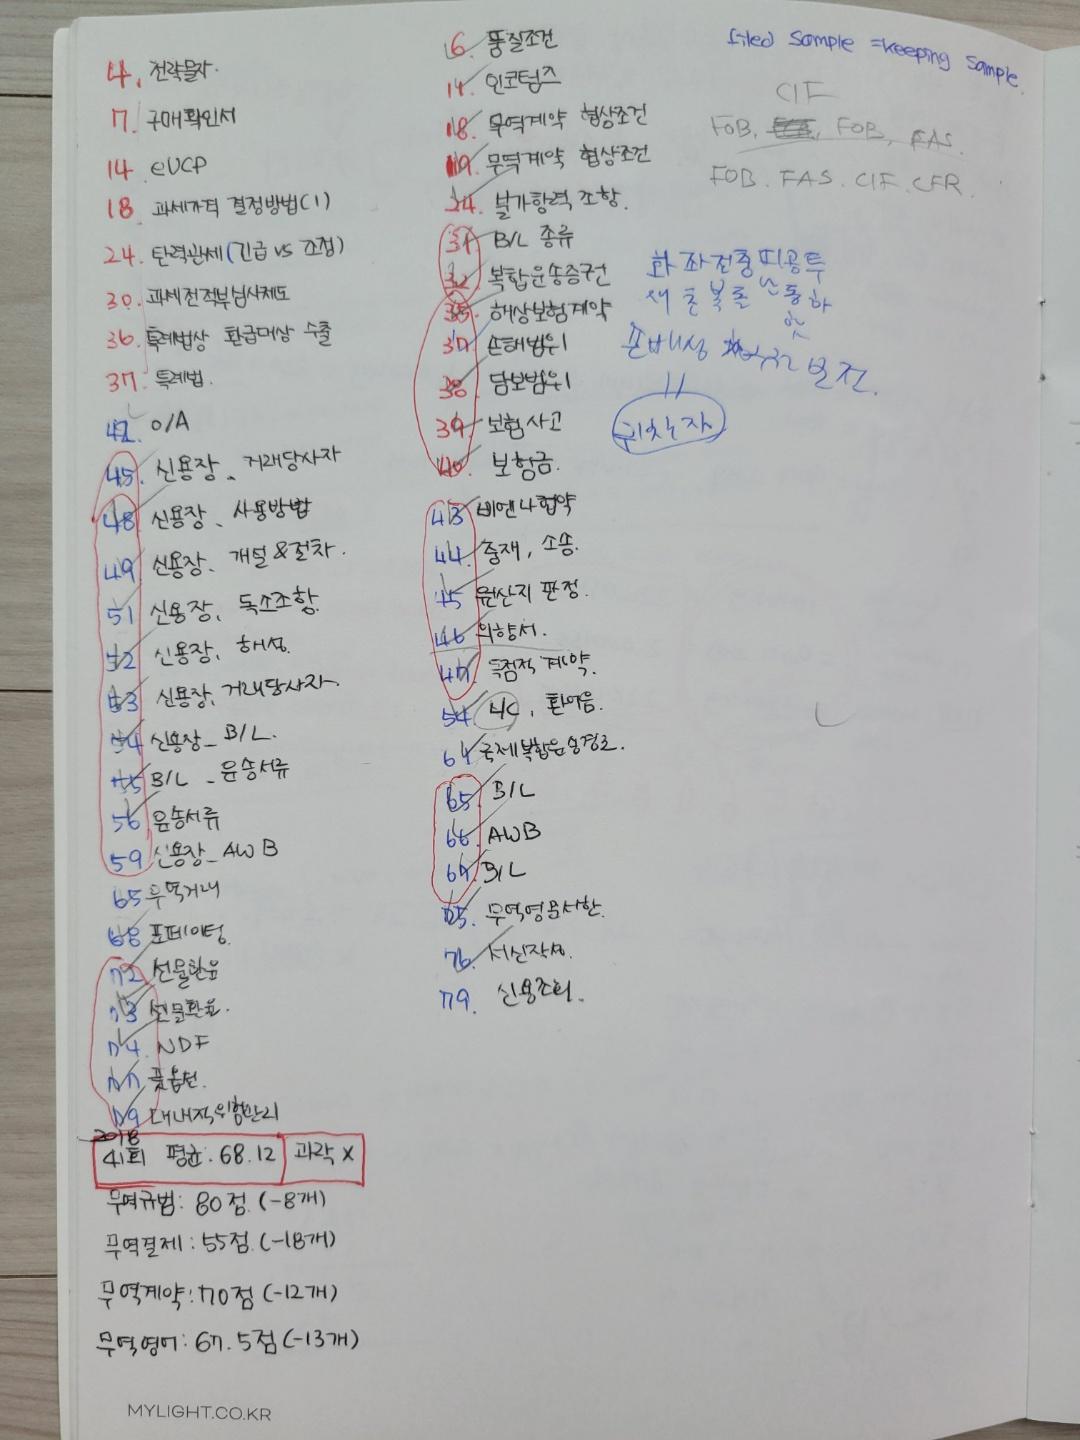 4. 전략물자.
7. 구매확인서
14. eUCP
18. 과세가격 결정방법(1)
24. 탄력관세(긴급 vs 조정)
30. 과세전적부심사제도
36. 특례법상 환급대상 수출
37. 특례법.
42. O/A
45. 신용장、거래당사자
48. 신용장、사용방법
49. 신용장、개설&절차.
51 신용장、독소조항.
52 신용장、해석.
53 신용장、거래당사자.
54 신용장_B/L.
55 B/L _ 운송서류
56 운송서류
59 신용장_AWB
65 무역거래
68 포페이팅.
72 선물환율
73 선물환율.
74. NDF
77 풋옵션.
79 대내적위험관리
2018
41회 평균: 68.12 과락 X
무역규범: 80점. (-8개)
무역결제: 55점. (-18개)
무역계약: 70점 (-12개)
무역영어: 67.5점 (-13개)
6. 품질조건
14. 인코텀즈
18. 무역계약 협상조건
19. 무역계약 협상조건
24. 불가항력 조항.
31. B/L 종류
32 복합운송증권
35. 해상보험계약
37. 손해범위
38. 담보범위
39. 보험사고
40. 보험금.
43. 비엔나협약
44. 중재, 소송.
45 원산지 판정.
46 의향서.
47. 독점적 계약.
54. L/C, 환어음.
64 국제복합운송경로.
65. B/L
66. AWB
67. B/L
75. 무역영문서한.
76. 서신작성.
79. 신용조회.
filed Sample =keeping Sample.
CIF
FOB, FOB, FAS.
FOB. FAS. CIF. CFR.
화 좌 전 중 띠 공 투